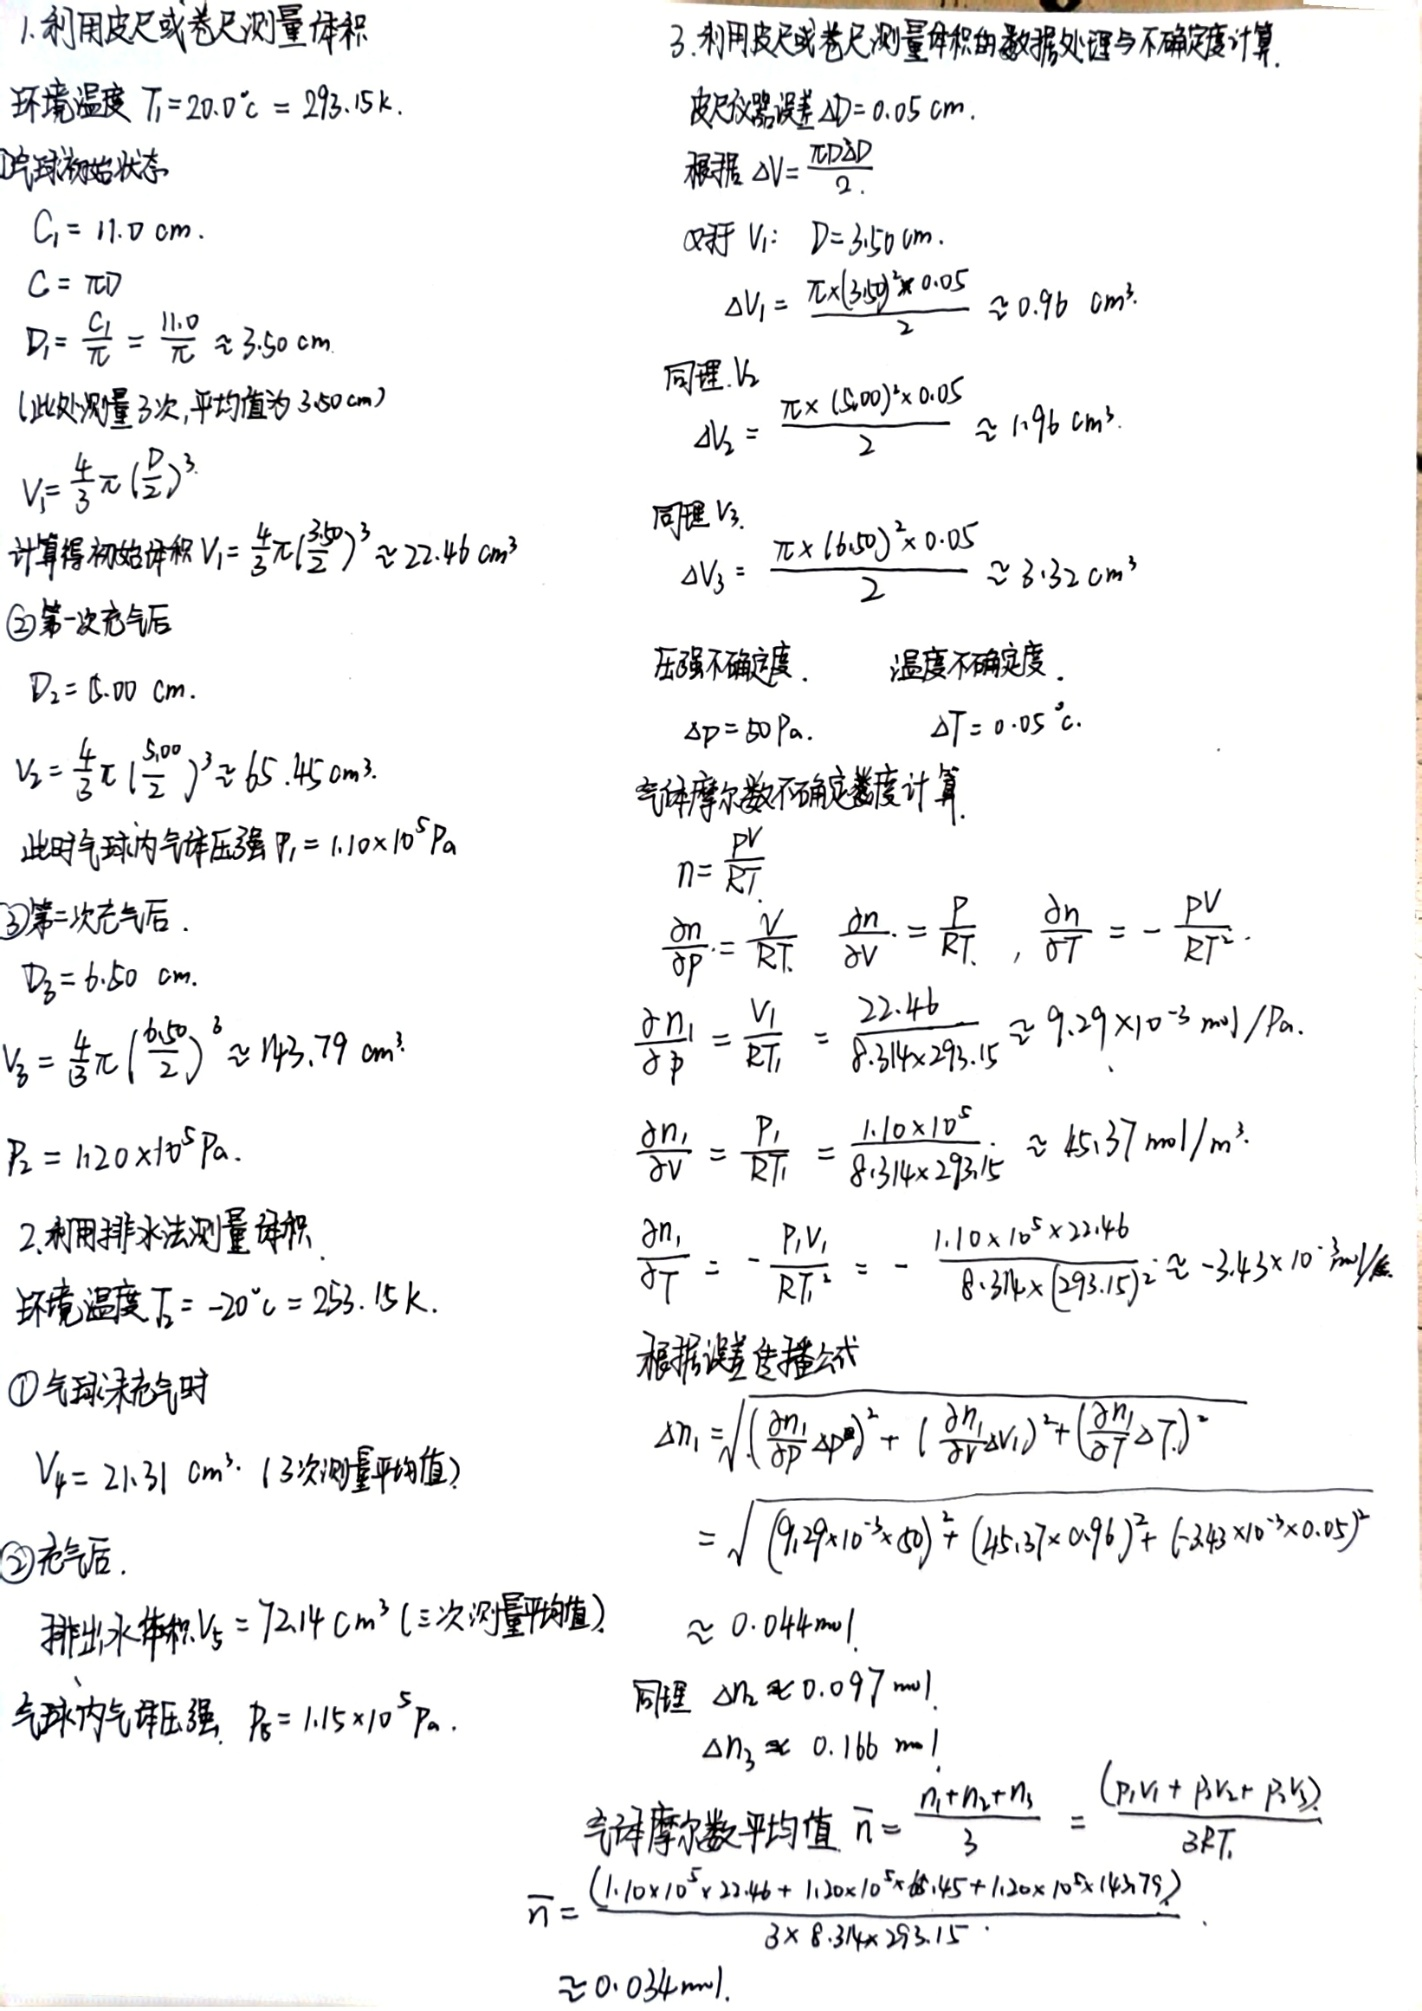 1.利用皮尺或卷尺测量体积
环境温度 T₁=20.0°c = 293.15k.
①气球初始状态
C₁ = 11.0 cm.
C = πD
D₁ = C₁/π = 11.0/π ≈ 3.50 cm
(此处测量3次,平均值为3.50cm)
V₁ = 4/3 π (D/2)³.
计算得初始体积 V₁ = 4/3 π (3.50/2)³ ≈ 22.46 cm³
②第一次充气后
D₂ = 5.00 cm.
V₂ = 4/3 π (5.00/2)³ ≈ 65.45 cm³.
此时气球内气体压强 P₁ = 1.10×10⁵Pa
③第二次充气后.
D₃ = 6.50 cm.
V₃ = 4/3 π (6.50/2)³ ≈ 143.79 cm³.
P₂ = 1.20×10⁵Pa.
2.利用排水法测量体积.
环境温度 T₂ = -20°c = 253.15k.
①气球未充气时
V₄ = 21.31 cm³. (3次测量平均值)
②充气后.
排出水体积V₅ = 72.14 cm³ (三次测量平均值).
气球内气体压强. P₅ = 1.15×10⁵Pa.
3.利用皮尺或卷尺测量体积的数据处理与不确定度计算.
皮尺仪器误差ΔD = 0.05 cm.
根据 ΔV = πDΔD/2.
对于 V₁: D = 3.50 cm.
ΔV₁ = π×(3.50)²×0.05/2 ≈ 0.96 cm³.
同理.V₂
ΔV₂ = π×(5.00)²×0.05/2 ≈ 1.96 cm³.
同理V₃.
ΔV₃ = π×(6.50)²×0.05/2 ≈ 3.32 cm³
压强不确定度. 温度不确定度.
Δp = 50Pa. ΔT = 0.05°c.
气体摩尔数不确定度计算.
n = PV/RT.
∂n/∂p = V/RT. ∂n/∂V = P/RT., ∂n/∂T = - PV/RT².
∂n₁/∂p = V₁/RT₁ = 22.46/8.314×293.15 ≈ 9.29×10⁻³ mol/Pa.
∂n₁/∂V = P₁/RT₁ = 1.10×10⁵/8.314×293.15 ≈ 45.37 mol/m³.
∂n₁/∂T = - P₁V₁/RT₁² = - 1.10×10⁵×22.46/8.314×(293.15)² ≈ -3.43×10⁻³mol/k.
根据误差传播公式
Δn₁ = √((∂n₁/∂p Δp)² + (∂n₁/∂V ΔV₁)² + (∂n₁/∂T ΔT.)²)
= √((9.29×10⁻³×50)² + (45.37×0.96)² + (-3.43×10⁻³×0.05)²)
≈ 0.044mol.
同理 Δn₂ ≈ 0.097 mol.
Δn₃ ≈ 0.166 mol.
气体摩尔数平均值 n̄ = n₁+n₂+n₃/3 = (P₁V₁ + P₂V₂ + P₂V₃)/3RT₁
n̄ = (1.10×10⁵×22.46 + 1.20×10⁵×65.45 + 1.20×10⁵×143.79)/3×8.314×293.15.
≈ 0.034mol.